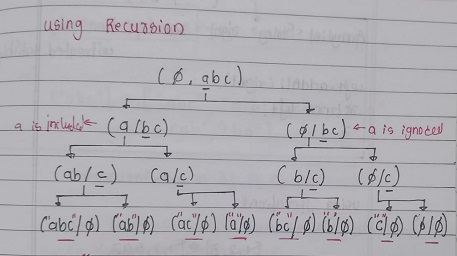 using Recursion
(ø, abc)
a is include ← (a/bc) (ø/bc) ← a is ignored
(ab/c) (a/c) (b/c) (ø/c)
("abc"/ø) ("ab"/ø) ("ac"/ø) ("a"/ø) ("bc"/ø) ("b"/ø) ("c"/ø) (ø/ø)